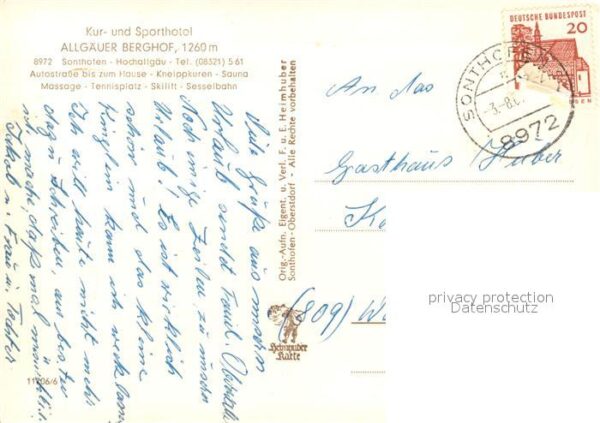 Kur- und Sporthotel
ALLGÄUER BERGHOF, 1260 m
8972 Sonthofen - Hochallgäu - Tel. (08321) 5 61
Autostraße bis zum Hause - Kneippkuren - Sauna
Massage - Tennisplatz - Skilift - Sesselbahn
Viele Grüße aus unserem
Urlaub sendet Famil.
Noch einige Zeilen zu unserem
Urlaub! Es ist wirklich
schön und das kleine
kann ich
Ich will heute nicht mehr
dazu schreiben, aus
ich mache daß mal mündlich
u. Frau u. Tochter
11706/6
Orig.-Aufn. Eigent. u. Verl. F. u. E. Heimhuber
Sonthofen-Oberstdorf Alle Rechte vorbehalten
Heimhuber
Karte
DEUTSCHE BUNDESPOST
20
SONTHOFEN
-3.-8.6
8972
An das
Gasthaus Huber
(809) Wa
privacy protection
Datenschutz